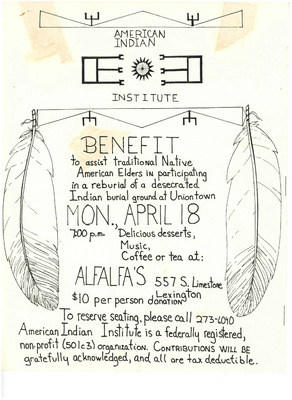 AMERICAN
INDIAN
INSTITUTE
BENEFIT
to assist traditional Native
American Elders in participating
in a reburial of a desecrated
Indian burial ground at Uniontown
MON., APRIL 18
7:00 p.m. Delicious desserts,
Music,
Coffee or tea at:
ALFALFA'S 557 S. Limestone
Lexington
$10 per person donation
To reserve seating, please call 273-6040
American Indian Institute is a federally registered,
non-profit (501c3) organization. CONTRIBUTIONS WILL BE
gratefully acknowledged, and all are tax deductible.